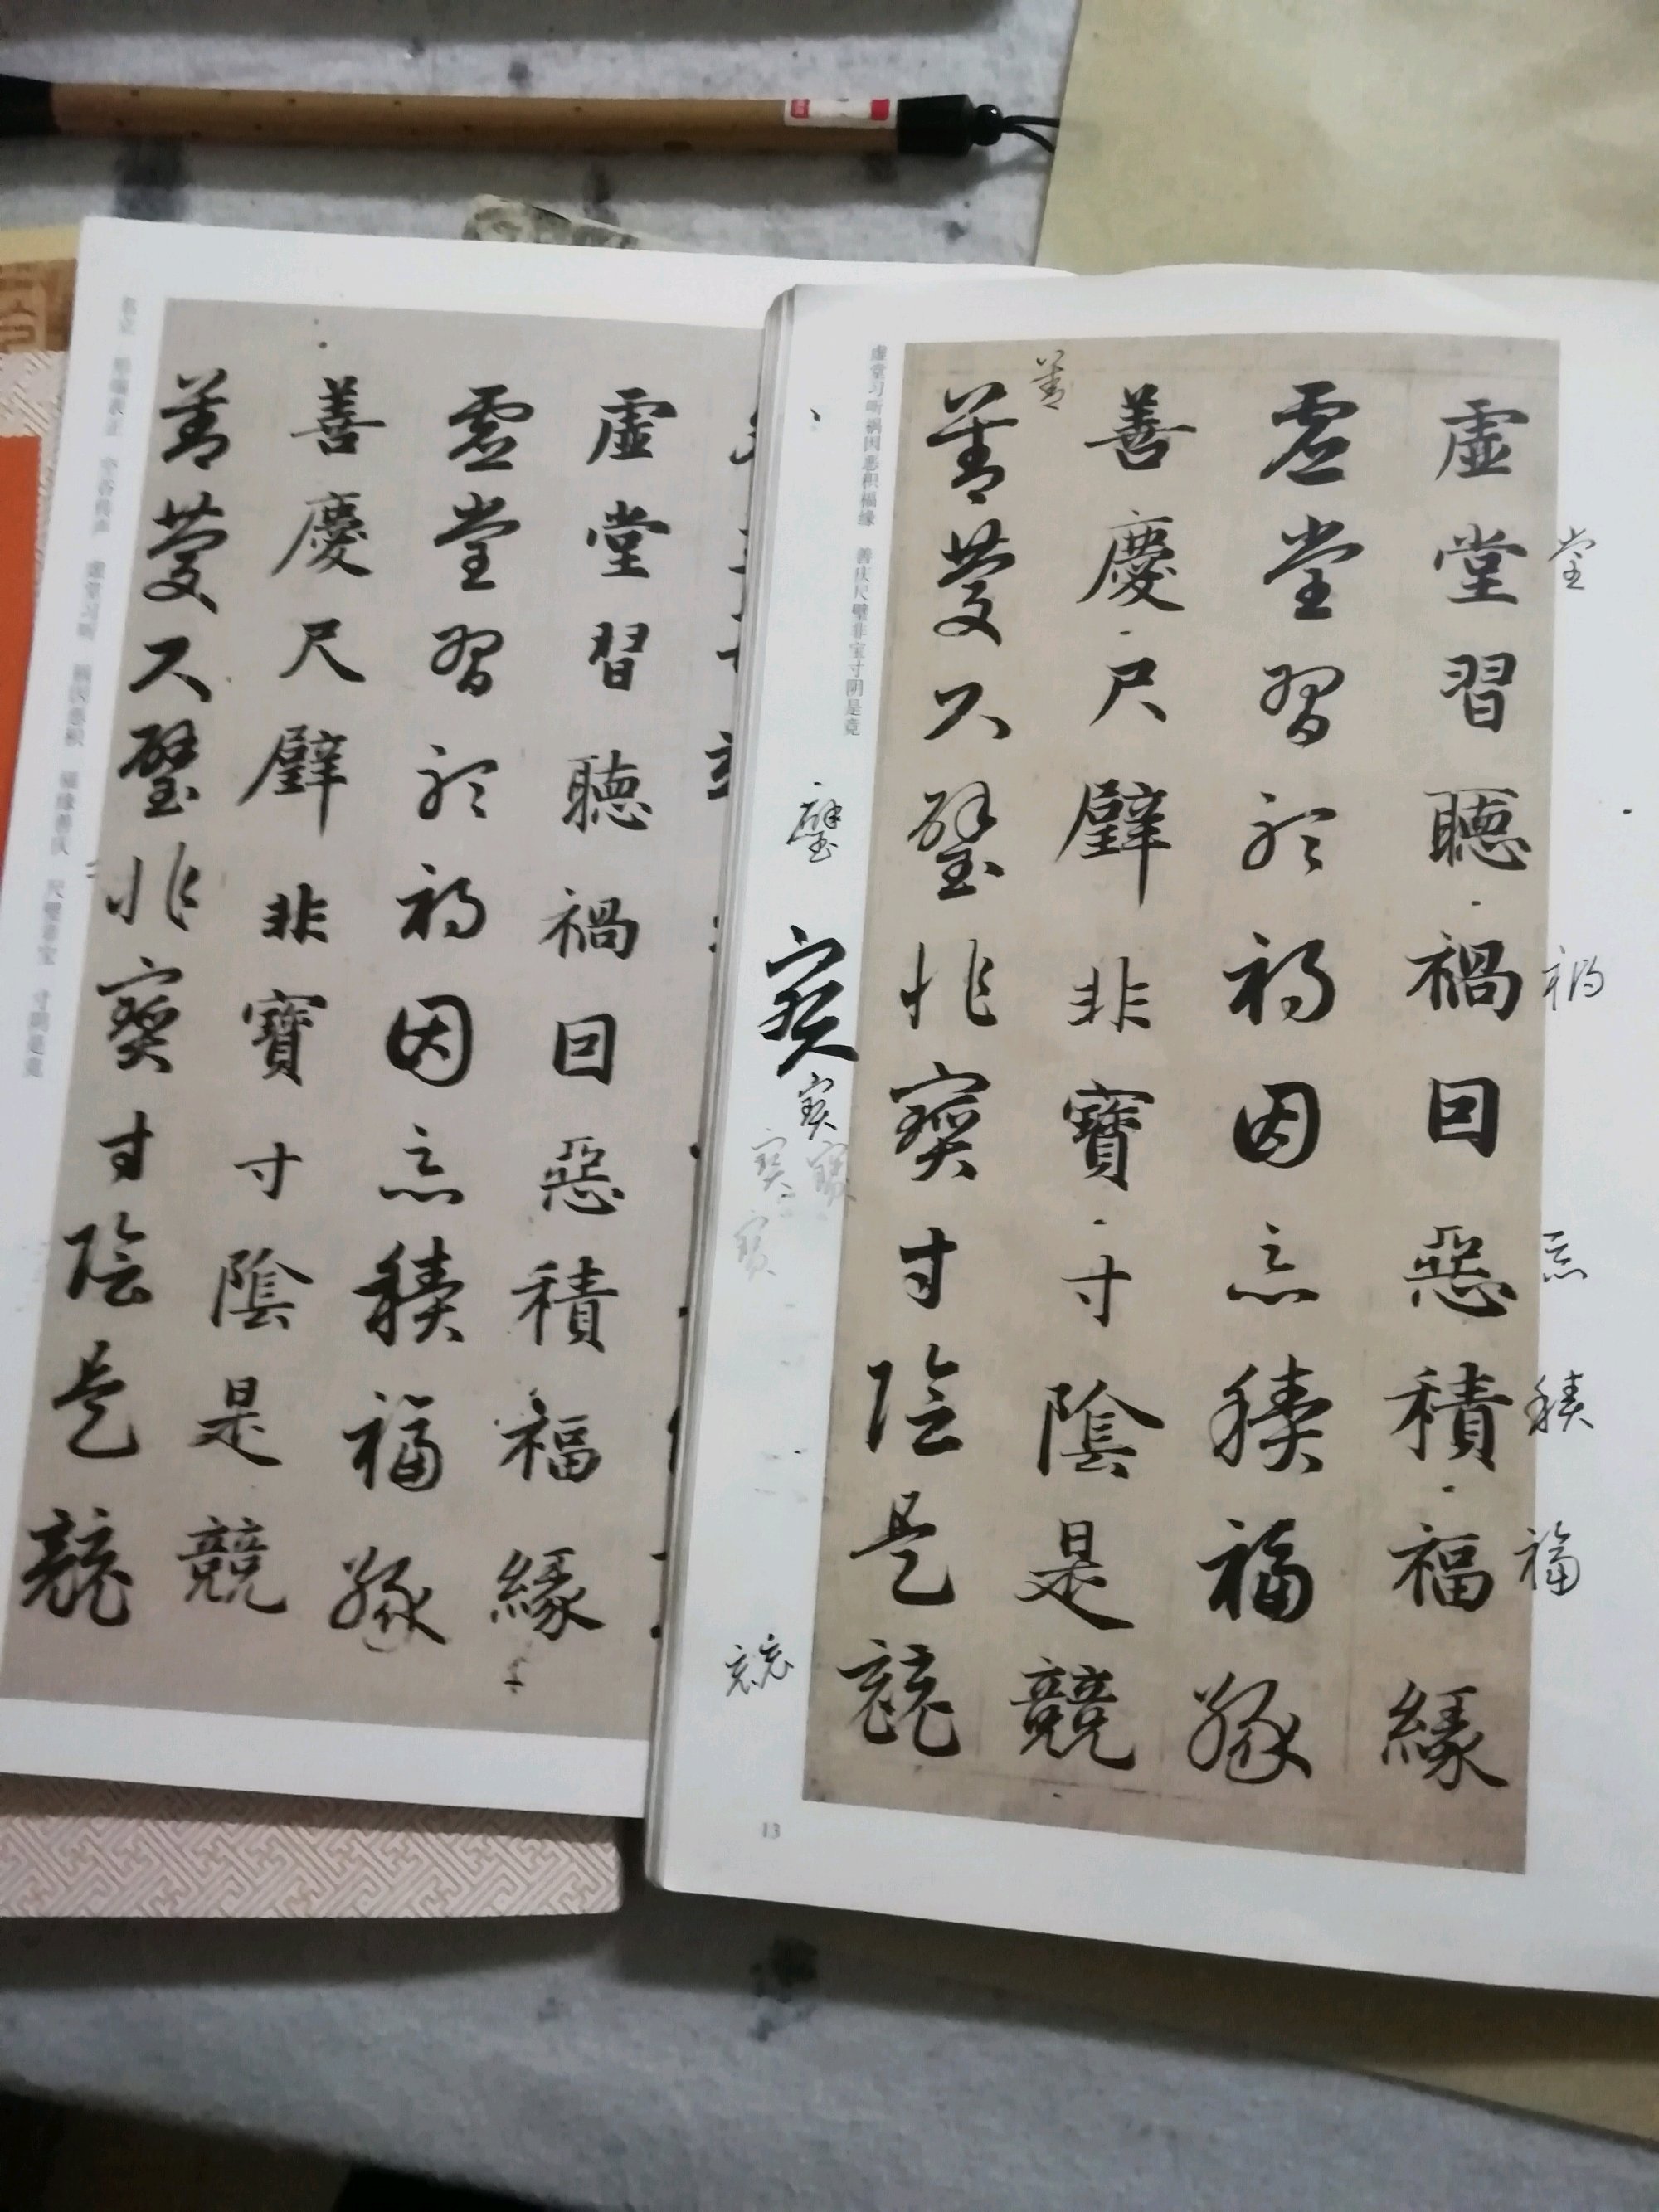 虛堂習聽禍因惡積福緣
虛堂習聽禍因惡積福緣
善慶尺璧非寶寸陰是競
善慶尺璧非寶寸陰是競
虚堂习听祸因恶积福缘 善庆尺璧非宝寸阴是竞
善
堂
禍
惡
積
福
璧
寶
寶
寶
寶
競
13
虛堂習聽禍因惡積福緣
虛堂習聽禍因惡積福緣
善慶尺璧非寶寸陰是競
善慶尺璧非寶寸陰是競
名立 形端表正 空谷传声 虚堂习听 祸因恶积 福缘善庆 尺璧非宝 寸阴是竞